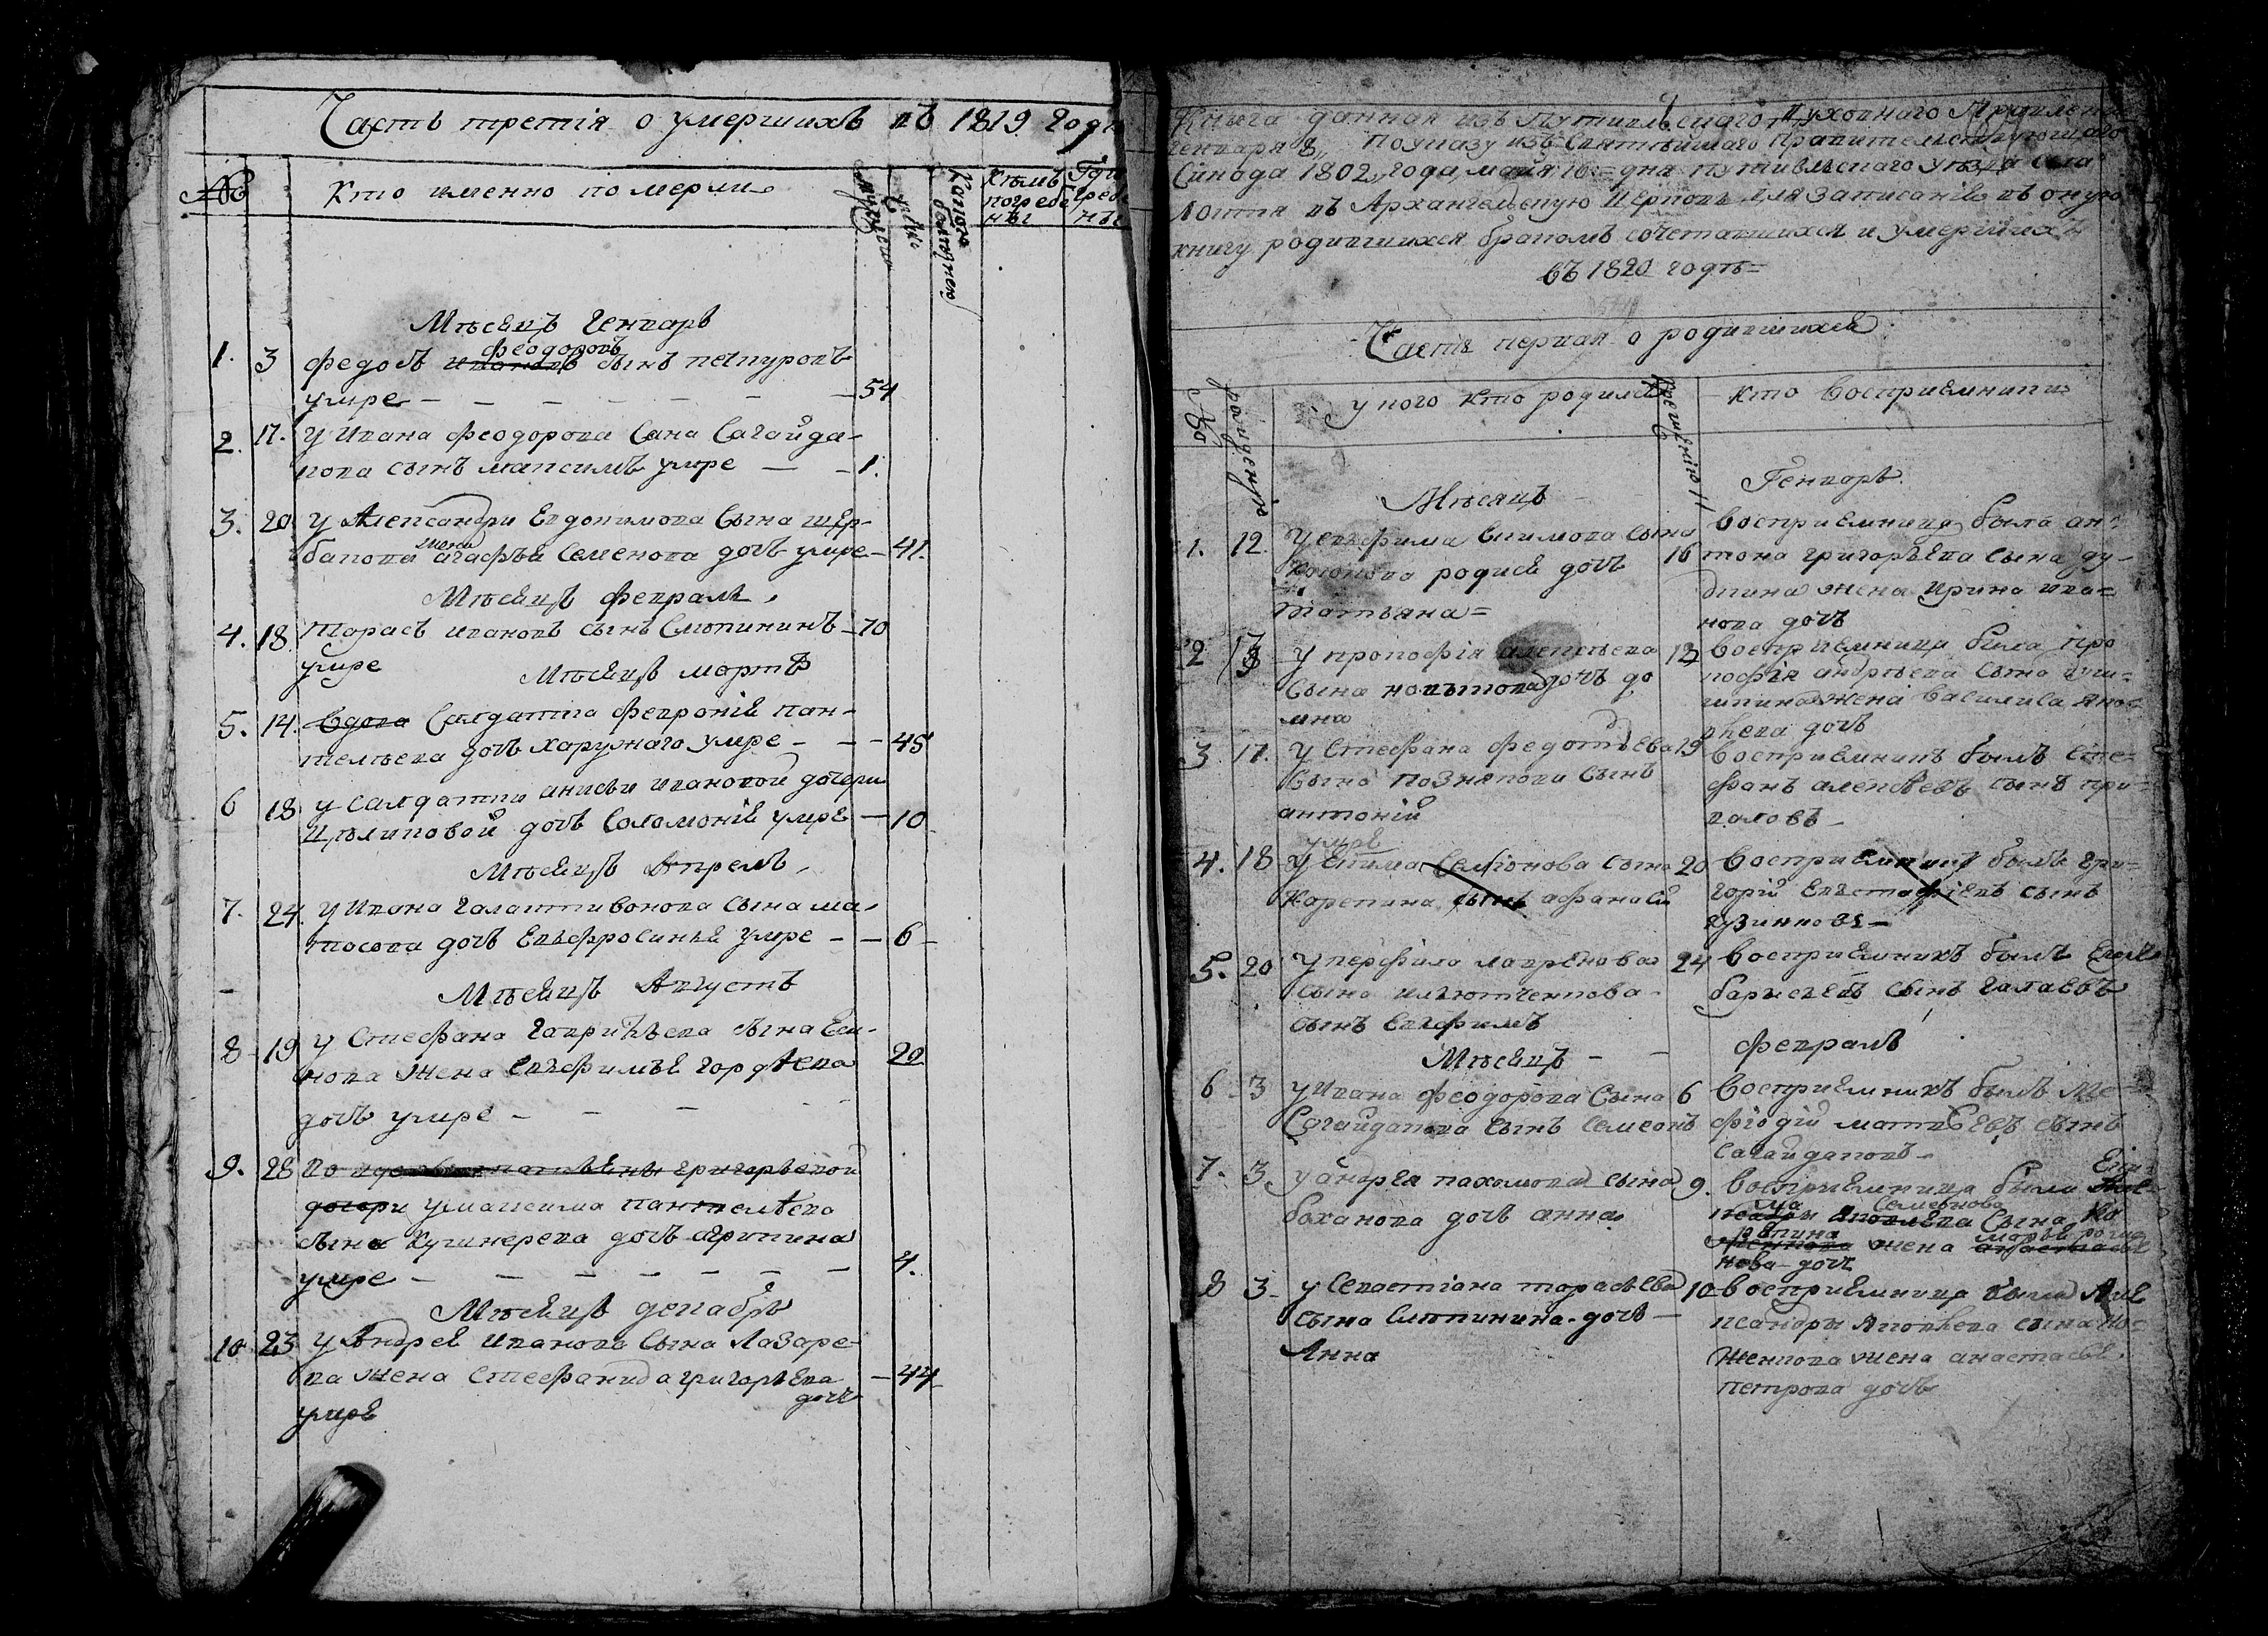 Часть третія о умершихъ въ 1819 годѣ
№
Кто именно померли
лѣта
Какою болезнею
Кѣмъ погребены
Гдѣ погребены
Мѣсяцъ Генварь
феодоровъ
1. 3 федотъ ивановъ сынъ
умре — — — — — — 54
2. 17. У Ивана Феодорова Сына Сагайда-
кова сынъ максимъ умре — — 1.
3. 20 У Александры Евдокимова Сына щер-
жена
бакова агафья Семенова дочь умре — 41.
Мѣсяцъ февраль
4. 18 Тарасъ ивановъ сынъ Слюпининъ — 70
умре
Мѣсяцъ мартъ
5. 14. вдова Салдатка феврония пан-
телѣева дочь харужаго умре — — — 45
6 18 У салдатки анисьи ивановой дочери
Цѣпиповой дочь Соломония умре — 10
Мѣсяцъ Апрель
7. 24. У Ивана Галактионова Сына ма-
тосова дочь Евфросинья умре — — 6 —
Мѣсяцъ Августъ
8 19 У Стефана Гаврилѣева сына Еси-
нова жена Евфимья гордѣева 20
дочь умре — — — —
9. 28 григорьевой
дочери У максима пантелѣева
сына Кушнерева дочь агрипина
умре — — — — — — — 4.
Мѣсяцъ декабрь
10 23 У Андрея Иванова Сына Лазаре-
ва жена Стефанида григорьева — 44
дочь
умре
Книга данная изъ Путивльскаго духовнаго Правления
генваря 8, по указу изъ Святѣйшаго Правителствующаго
Синода 1802, года, майя 16 дня путивльскаго уѣзда села
въ Архангельскую Церковь для записания въ оную
книгу родившихся бракомъ сочетавшихся и умершихъ
въ 1820 годѣ =
Часть первая о родившихся
№
рождение
у кого кто родился
крещение
кто восприемники
Мѣсяцъ
Генварь
1. 12. У евфима Сына
родися дочь
татьяна =
16 восприемница была ан-
тона григорьева сына ду-
бкина жена Ирина ива-
нова дочь
2 13 У прокофія алексѣева
Сына дочь до
мна
13 восприемница была про
кофія андрѣева сына
жена василиса яко-
влева дочь
3 17. У Стефана федотьева
Сына Познякова Сынъ
антоній
19 восприемникъ былъ сте-
фанъ алексѣевъ сынъ при-
валовъ —
умре
4. 18 У Екима Семіонова сына
Карепина сынъ афанасій
20 восприемникъ былъ гри-
горій Евстафиевъ сынъ
кузинновъ —
5. 20 У перфила лавренова
сына
сынъ Евфимъ
24 восприемникъ былъ
барисъевъ сынъ Галаевъ
Мѣсяцъ — —
февраль
6 3 У Ивана феодорова Сына
Сагайдакова сынъ Семеонъ
6 Восприемникъ былъ Ме-
фіодій матвѣевъ сынъ
Сагайдаковъ —
7. 3 У андрея пахомова сына
баханова дочь анна
9. восприемница была
Еки-
ма Семеонова
Яковлева Сына Ка
репина марья рома
жена анастасья
нова дочь
8 3 — У Севастіана тарасьева
сына Слюпинина дочь —
Анна
10 — восприемница была Але
ксандры Яковлева сына
женкова жена анастасья
петрова дочь